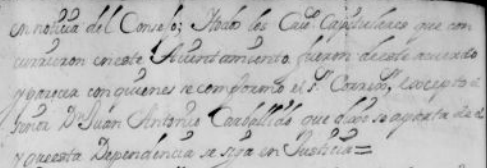 en noticia del Consejo; Ytodos los Cavs. Capitulares que con
currieron en este Aiuntamiento fueron deeste acuerdo
y parecer con quienes se comformo el Sr. Corregr. excepto el
señor Dn. Juan Antonio Carballido que dixo se aparta de el
y que esta Dependencia se siga en Justicia=